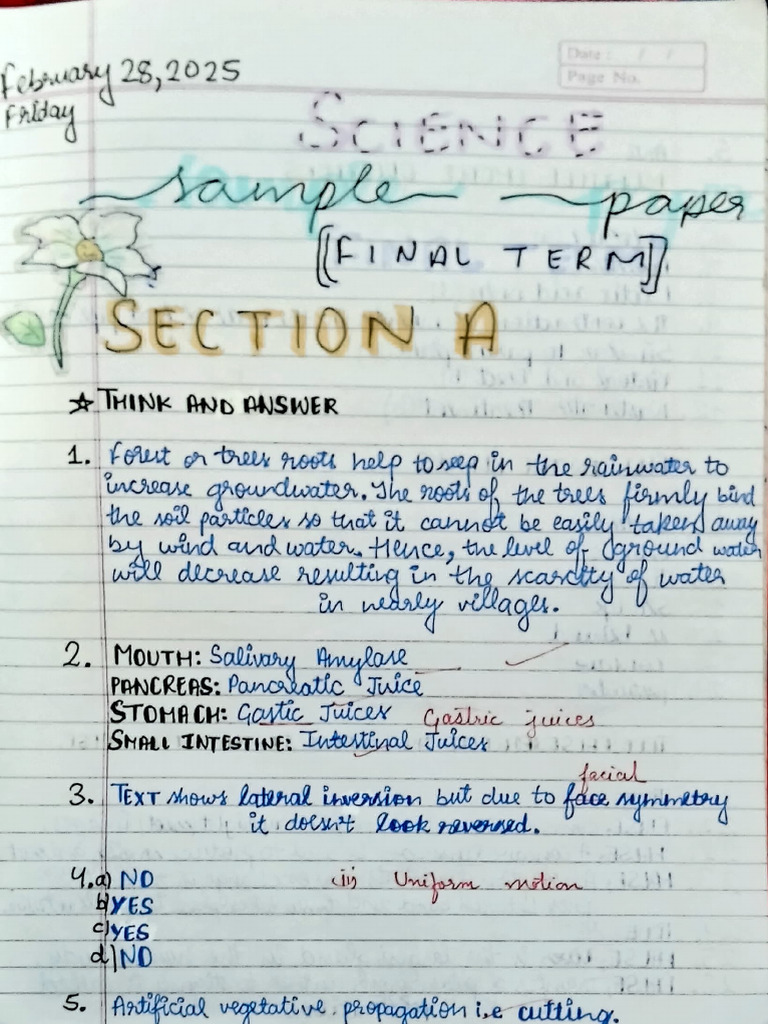 February 28, 2025
Friday
Date : / /
Page No.
SCIENCE
sample paper
[FINAL TERM]
SECTION A
☆ THINK AND ANSWER
1. Forest or trees roots help to seep in the rainwater to
increase groundwater. The roots of the trees firmly bind
the soil particles so that it cannot be easily taken away
by wind and water. Hence, the level of ground water
will decrease resulting in the scarcity of water
in nearly villages.
2. MOUTH: Salivary Amylase
PANCREAS: Pancreatic Juice
STOMACH: Gastic Juices Gastric juices
SMALL INTESTINE: Intestinal Juices
facial
3. TEXT shows lateral inversion but due to face symmetry
it doesn't look reversed.
4. a) NO (ii) Uniform motion
b) YES
c) YES
d) NO
5. Artificial vegetative propagation i.e cutting.